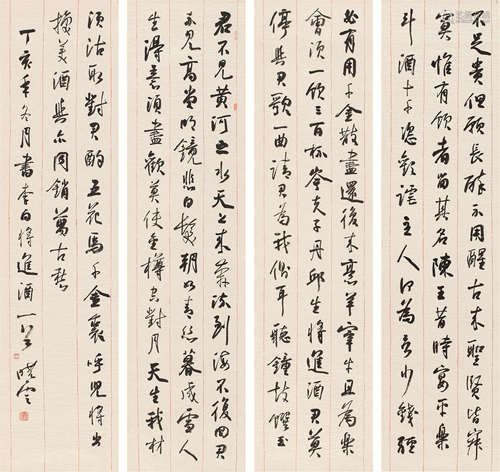 君不見黃河之水天上來奔流到海不復回君
不見高堂明鏡悲白髮朝如青絲暮成雪人
生得意須盡歡莫使金樽空對月天生我材
必有用千金散盡還復來烹羊宰牛且為樂
會須一飲三百杯岑夫子丹邱生將進酒君莫
停與君歌一曲請君為我側耳聽鐘鼓饌玉
不足貴但願長醉不用醒古來聖賢皆寂
寞惟有飲者留其名陳王昔時宴平樂
斗酒十千恣歡謔主人何為言少錢徑
須沽取對君酌五花馬千金裘呼兒將出
換美酒與尔同銷萬古愁
丁亥年冬月書李白將進酒一首 曉雲